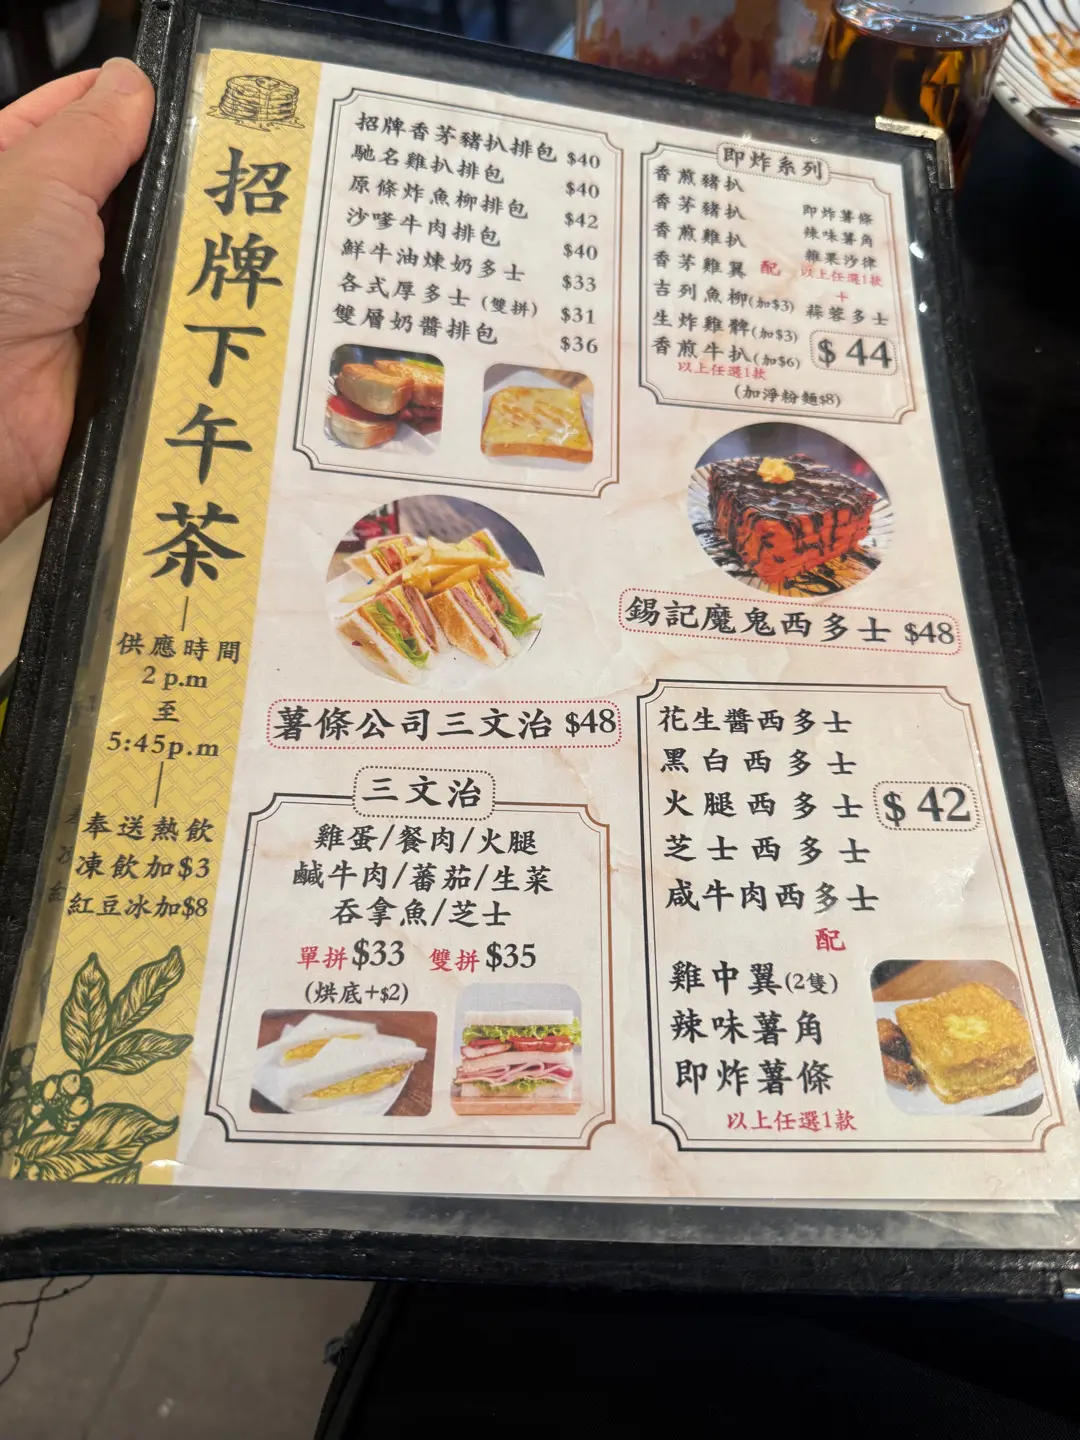 招牌下午茶
供應時間
2 p.m
至
5:45p.m
奉送熱飲
凍飲加$3
紅豆冰加$8
招牌香茅豬扒排包 $40
馳名雞扒排包 $40
原條炸魚柳排包 $42
沙嗲牛肉排包 $40
鮮牛油煉奶多士 $33
各式厚多士(雙拼) $31
雙層奶醬排包 $36
即炸系列
香煎豬扒
香茅豬扒
香煎雞扒
香茅雞翼
吉列魚柳(加$3)
生炸雞髀(加$3)
香煎牛扒(加$6)
以上任選1款
配
即炸薯條
辣味薯角
雜果沙律
以上任選1款
+
蒜蓉多士
$44
(加淨粉麵$8)
錫記魔鬼西多士 $48
薯條公司三文治 $48
三文治
雞蛋/餐肉/火腿
鹹牛肉/蕃茄/生菜
吞拿魚/芝士
單拼$33 雙拼$35
(烘底+$2)
花生醬西多士
黑白西多士
火腿西多士
芝士西多士
咸牛肉西多士
$42
配
雞中翼(2隻)
辣味薯角
即炸薯條
以上任選1款